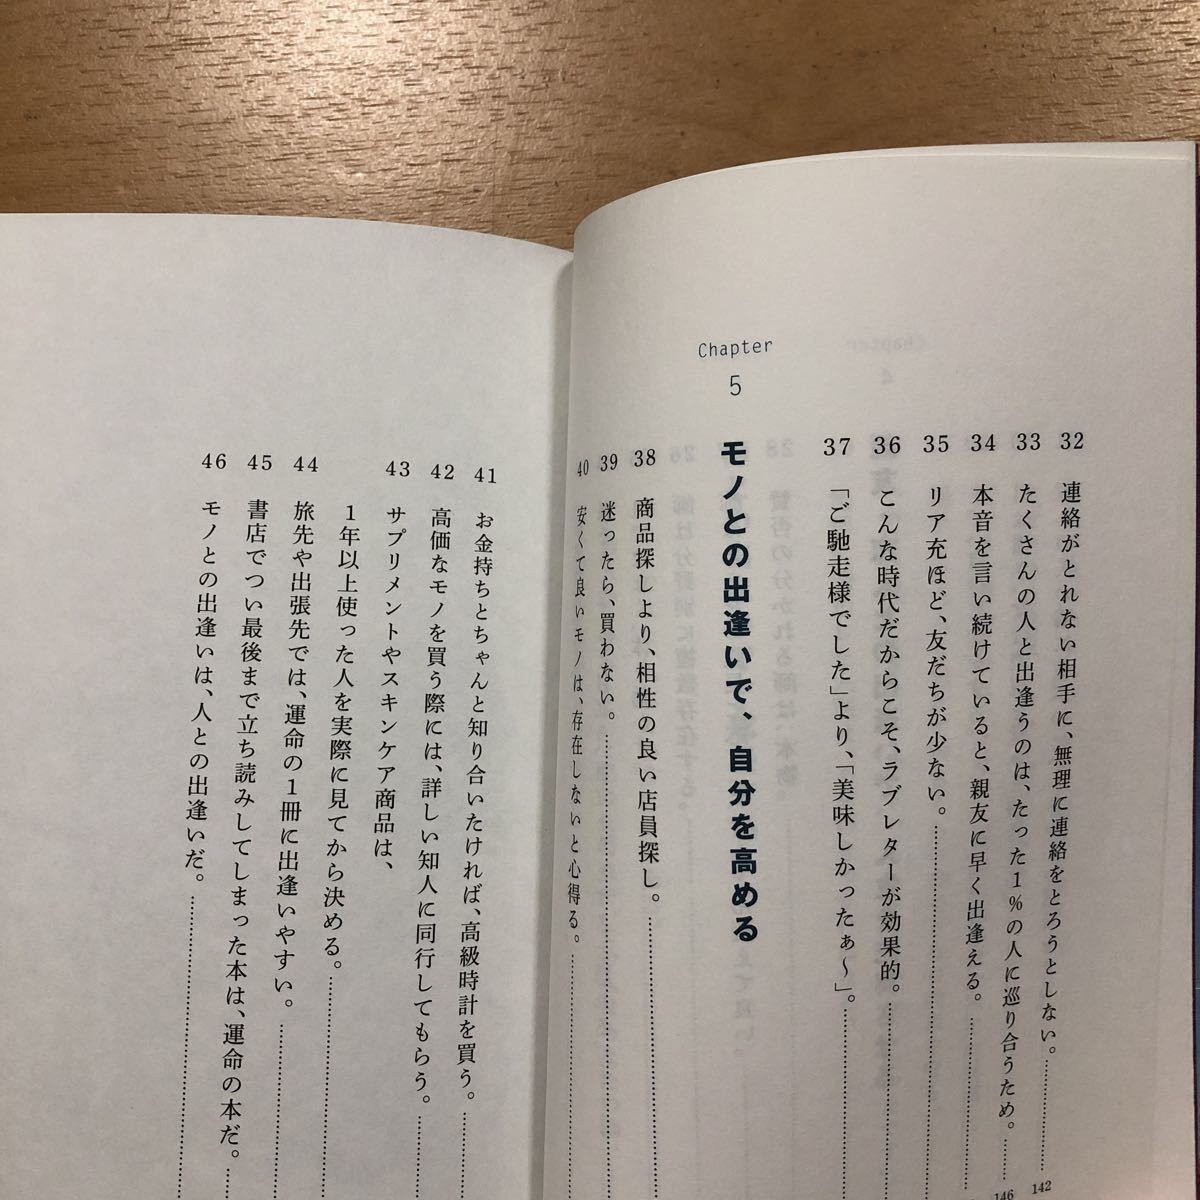 32 連絡がとれない相手に、無理に連絡をとろうとしない。 142
33 たくさんの人と出逢うのは、たった1%の人に巡り合うため。 146
34 本音を言い続けていると、親友に早く出逢える。
35 リア充ほど、友だちが少ない。
36 こんな時代だからこそ、ラブレターが効果的。
37 「ご馳走様でした」より、「美味しかったぁ〜」。
Chapter
5
モノとの出逢いで、自分を高める
38 商品探しより、相性の良い店員探し。
39 迷ったら、買わない。
40 安くて良いモノは、存在しないと心得る。
41 お金持ちとちゃんと知り合いたければ、高級時計を買う。
42 高価なモノを買う際には、詳しい知人に同行してもらう。
43 サプリメントやスキンケア商品は、
1年以上使った人を実際に見てから決める。
44 旅先や出張先では、運命の1冊に出逢いやすい。
45 書店でつい最後まで立ち読みしてしまった本は、運命の本だ。
46 モノとの出逢いは、人との出逢いだ。